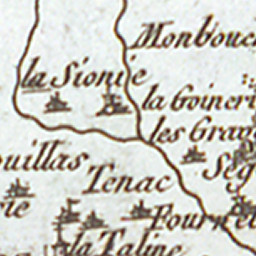 Monbouc
la Sionie
la Goineri
les Grav
ouillas
Seg
Tenac
rie
Fournet
la Taline